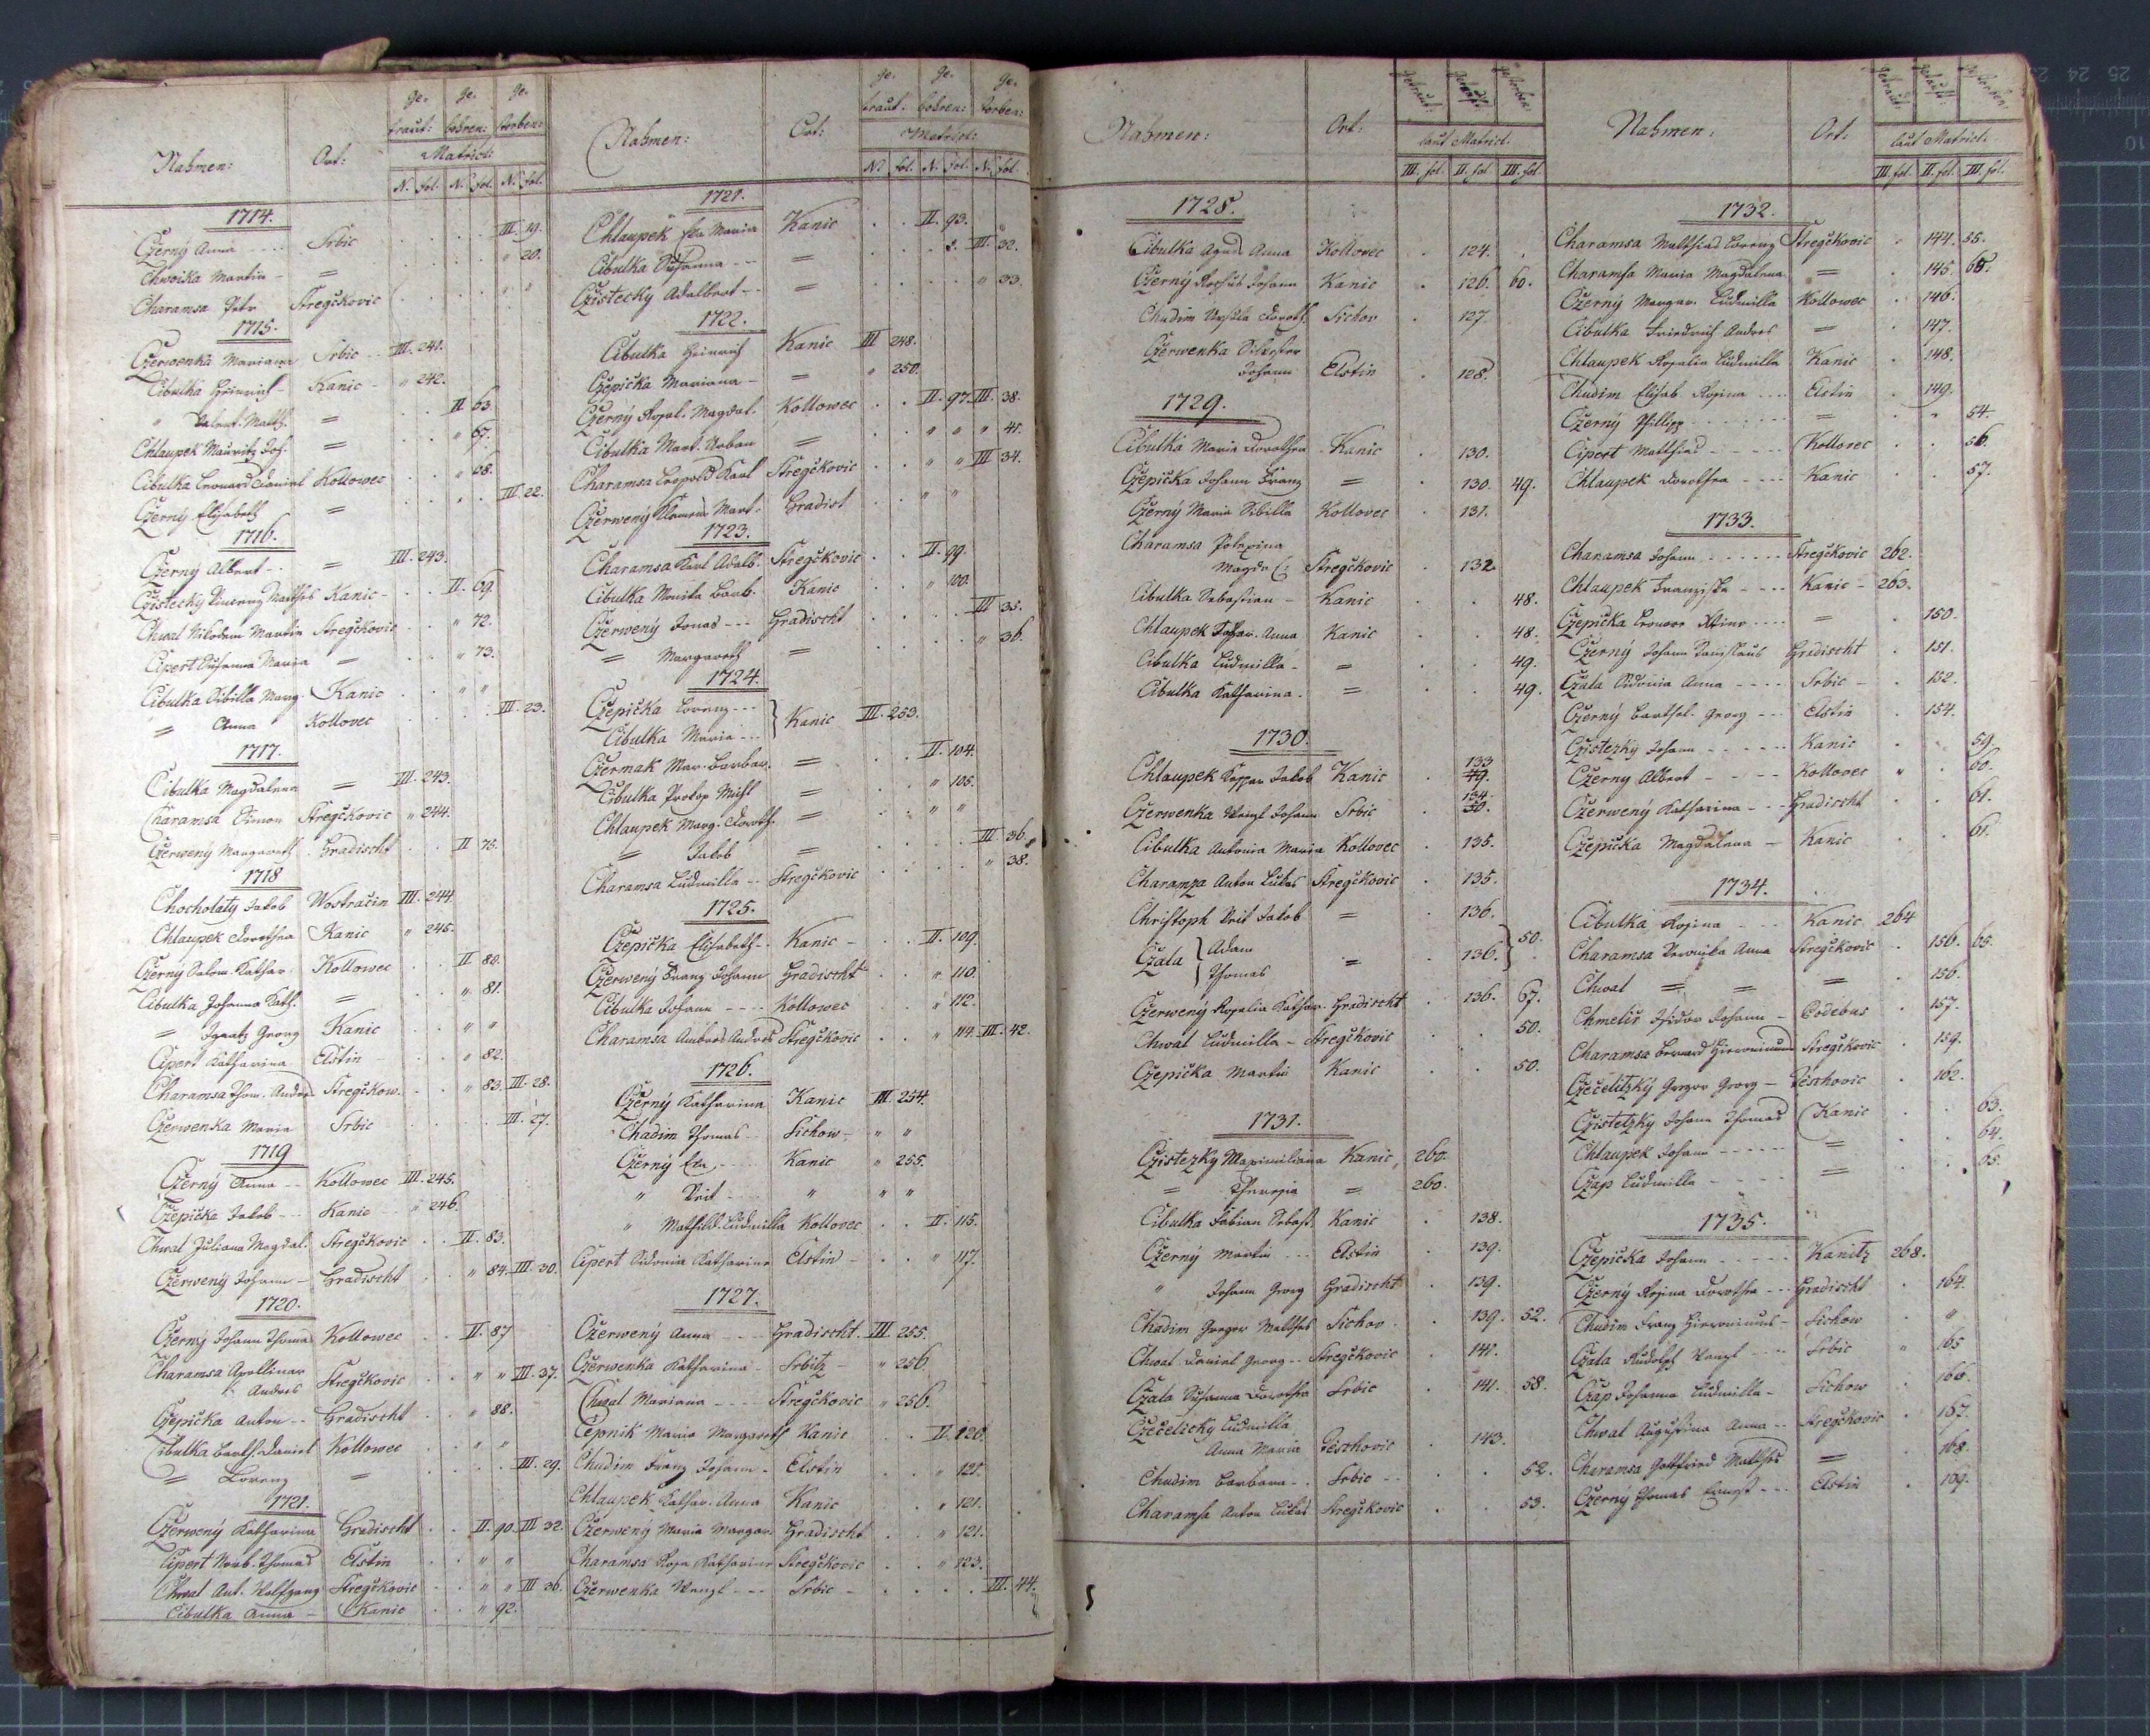 ge. ge. ge.
traut: bohren: storben:
Nahmen: Ort: Matricl:
N. fol. N. fol. N. fol.
1714.
Czerný Anna Srbic III. 19.
Martin = " 20.
Charamsa Petr Stregčkovic " "
1715.
Czerwenka Mariana Srbic III. 241.
Cibulka Heinrich Kanic " 242.
" Valent. Math. = II 63
Chlaupek Mauritz Jos. = " 67.
Cibulka Leonard Daniel Kollowec " 68.
Czerný Elisabeth = III. 22.
1716.
Czerný Albert = III. 243.
Czistecky Vincenz Mathes Kanic II. 69.
Chwal Nikodem Martin Stregčkovic " 72.
Cipert Susanna Maria = " 73.
Cibulka Sibilla Marg. Kanic " "
= Anna Kollovec III. 23.
1717.
Cibulka Magdalena = III. 243.
Charamsa Simon Stregčkovic " 244.
Czerwený Margareth Gradischt II 78.
1718
Chocholatý Jakob Wostračin III. 244.
Chlaupek Dorothea Kanic " 245.
Czerný Salom. Kathar. Kollowec II 80.
Cibulka Johanna Kath. = " 81.
= Ignatz Georg Kanic " "
Cipert Katharina Elstin " 82.
Charamsa Thom. Andre. Stregčkow. " 83. III. 28.
Czerwenka Maria Srbic III. 27.
1719
Czerný Anna Kollowec III. 245.
Czepička Jakob Kanic " 246.
Chwal Juliana Magdal. Stregčkovic II. 83.
Czerwený Johann Gradischt " 84. III. 30.
1720.
Czerný Johann Thomas Kollowec II. 87
Charamsa Apollinar
Andres Stregčkovic " " III. 37.
Czepička Anton Gradischt " 88.
Cibulka Barth. Daniel Kollowec " "
= Lorenz = III. 29.
1721.
Czerwený Katharina Gradischt II. 90. III 32.
Cipert Norb. Thomas Elstin " "
Chwal Ant. Wolfgang Stregčkovic " " III 36.
Cibulka Anna Kanic " 92.
ge. ge. ge.
traut. bohren: storben:
Nahmen: Ort: Matricl:
N. fol. N. fol. N. fol.
1721.
Chlaupek Eva Maria Kanic II. 93.
Cibulka Susanna = III. 32.
Czistecky Adalbert = " 33.
1722.
Cibulka Heinrich Kanic III 248.
Czepička Mariana = " 250.
Czerný Rosal. Magdal. Kollowec II. 97. III. 38.
Cibulka Mart. Urban = " " " 41.
Charamsa Leopold Karl Stregčkovic " " III 34.
Czerwený Klemens Mart. Gradist " "
1723.
Charamsa Karl Adalb. Stregčkovic II. 99.
Cibulka Monika Barb. Kanic " 100.
Czerwený Jonas Gradischt III 35.
= Margareth = " 36.
1724.
Czepička Lorenz
Cibulka Maria } Kanic III. 253.
Czermak Mar. Barbar. = II. 104.
Cibulka Prokop Michl = " 105.
Chlaupek Marg. Doroth. = " "
= Jakob = III 36.
Charamsa Ludmilla Stregčkovic " 38.
1725.
Czepička Elisabeth Kanic II. 109.
Czerwený Franz Johann Gradischt " 110.
Cibulka Johann Kollowec " 112.
Charamsa Ambros Andres Stregčkovic " 114. III. 42.
1726.
Czerný Katharina Kanic III. 254.
Chadim Thomas Sichow " "
Czerný Eva Kanic " 255.
" Veit " " "
" Mathild. Ludmilla Kollovec II. 115.
Cipert Sidonia Katharina Elstin " 117.
1727.
Czerwený Anna Gradischt III. 255.
Czerwenka Katharina Srbitz " 256
Chwal Mariana Stregčkovic " 256.
Cepnik Maria Margareth Kanic II. 120.
Chudim Franz Johann Elstin " 121.
Chlaupek Kathar. Anna Kanic " 121.
Czerwený Maria Margar. Gradischt " 121.
Charamsa Rosa Katharina Stregčkovic " 123.
Czerwenka Wenzl Srbic III. 44.
Nahmen: Ort: getraut. getauft. gestorben:
laut Matricl.
III. fol. II. fol. III. fol.
1728.
Cibulka Agnes Anna Kollovec 124.
Czerný Rochus Johann Kanic 126. 60.
Chudim Ursula Doroth. Sichov 127
Czerwenka Silvester
Johann Elstin 128.
1729.
Cibulka Maria Dorothea Kanic 130.
Czepička Johann Franz = 130. 49.
Czerný Maria Sibilla Kollovec 131.
Charamsa Polexina
Magda Stregčkovic 132
Cibulka Sebastian Kanic 48.
Chlaupek Johan. Anna Kanic 48.
Cibulka Ludmilla = 49.
Cibulka Katharina = 49.
1730.
Chlaupek Kaspar Jakob Kanic 133
49.
Czerwenka Wenzl Johann Srbic 134
50.
Cibulka Antonia Maria Kollovec 135.
Charamza Anton Lukas Stregčkovic 135.
Christoph Veit Jakob = 136.
Czala { Adam
Thomas = 136. } 50.
Czerwený Rosalia Kathar. Gradischt 136. 67.
Chwal Ludmilla Stregčkovic 50.
Czepička Martin Kanic 50.
1731.
Czistezky Maximiliana Kanic 260.
= Theresia = 260.
Cibulka Fabian Sebast. Kanic 138.
Czerný Martin Elstin 139.
" Johann Georg Gradischt 139.
Chadim Gregor Mathes Sichov 139. 52.
Chwal Daniel Georg Stregčkovic 141.
Czala Susanna Dorothea Srbic 141. 58.
Czečelicky Ludmilla
Anna Maria 143.
Chudim Barbara Srbic 52.
Charamsa Anton Lukas Stregčkovic 53.
Nahmen: Ort: getraut. getauft. gestorben.
laut Matricl.
III. fol. II. fol. III. fol.
1732.
Charamsa Matthias Lorenz Stregčkovic 144. 55.
Charamsa Maria Magdalena = 145. 65.
Czerný Margar. Ludmilla Kollowec 146.
Cibulka Friedrich Andres = 147.
Chlaupek Rosalia Ludmilla Kanic 148.
Chudim Elisab. Rosina Elstin 149.
Czerný Phillipp = " 54.
Cipert Matthias Kollovec 56.
Chlaupek Dorothea Kanic 57.
1733.
Charamsa Johann Stregčkovic 262.
Chlaupek Franziska Kanic 263.
Czepička Leonore = 150.
Czerný Johann Gradischt 151.
Czala Sidonia Anna Srbic 152.
Czerný Barthol. Georg Elstin 154.
Czistezký Johann Kanic 59.
Czerny Albert Kollovec 60.
Czerwený Katharina Gradischt 61.
Czepička Magdalena Kanic 61.
1734.
Cibulka Rosina Kanic 264
Charamsa Veronika Anna Stregčkovic 156. 65.
Chwal = = = 156.
Chmeliř Isidor Johann Codebus 157.
Charamsa Bernard Hieronimus Stregčkovic 159.
Czečelitzký Gregor Georg 162.
Czistetzky Johann Thomas Kanic 63.
Chlaupek Johann = 64.
Czap Ludmilla = 65.
1735.
Czepička Johann Kanitz 268.
Czerný Rosina Dorothea Gradischt 164.
Chudim Franz Hieronimus Sichow "
Czala Rudolph Wenzl Srbic 165
Czap Johanna Ludmilla Sichow 166.
Chwal Augustina Anna Stregčkovic 167.
Charamsa Gottfried Mathes = 168.
Czerný Thomas Ernest Elstin 169.